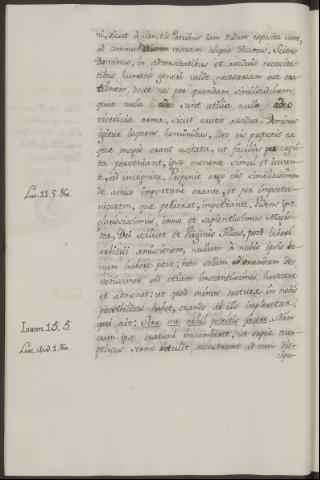 ni, sicut à Sanctis Patribus iam dudum exposita sunt,
ad communem vestram aliqua dicamus. Sciens
Dominus, in adversitatibus et assiduis necessita-
tibus humano generi valde necessariam esse ora-
tionem, docet nos per quandam similitudinem,
quia nulla adeo sunt utilia, nulla adeo
victricia arma, sicut oratio assidua. Dominus
igitur loquens hominibus, ideo eis proponit ea
quæ magis erant usitata, ut facilius per cogni-
ta perveniant, ipso monente simul et iuvan-
te, ad incognita. Proponit ergo eis similitudinem
de amico importune orante, et per importu-
nitatem, quæ petierat, impetrante. Videns ipse
gloriosissimus, immo et sapientissimus Magis-
ter, Dei scilicet et Virginis Filius, post liberi
arbitrii amissionem, nullum à nobis ipsis bo-
num haberi posse; non solum ad orandum de-
votissimus, sed etiam instantissimus hortatur
et admonet: ut quod minus natura in nobis
possibilitas habet, orando ab illo impleretur,
qui ait: Sine me nihil potestis facere. Nam
cum ipse orationi incumberet, ut supra evan-
gelicus sermo retulit, accesserunt ad eum dis-
cipu-
Luc. 11. 5. &c.
Ioann. 15. 5.
Luc. ibid. 1. &c.